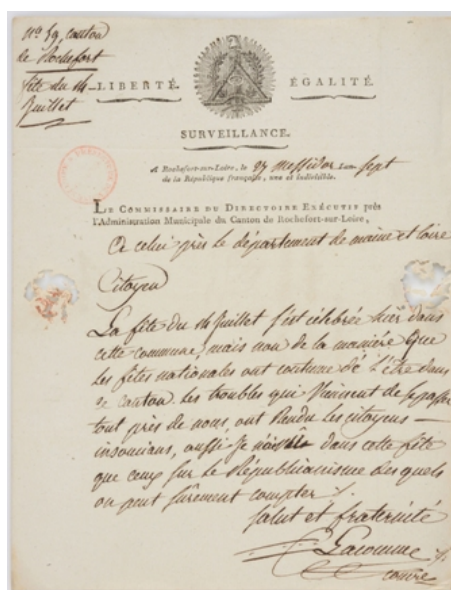 nº 59, canton
de Rochefort
fête du 14
Juillet
LIBERTÉ. ÉGALITÉ.
SURVEILLANCE.
A Rochefort-sur-Loire, le 27 Messidor an sept
de la République française, une et indivisible.
LE COMMISSAIRE DU DIRECTOIRE EXÉCUTIF près
l'Administration Municipale du Canton de Rochefort-sur-Loire,
A celui près le département de maine et loire
Citoyen
La fête du 14 Juillet s'est célébrée hier dans
cette commune, mais non de la manière que
les fêtes nationales ont coutume de l'être dans
ce canton. les troubles qui viennent de se passer
tout près de nous, ont rendu les citoyens
insoucians, aussi je n'ai dans cette fête
que ceux sur le Républicanisme des quels
on peut sûrement compter
salut et fraternité
Lacomme